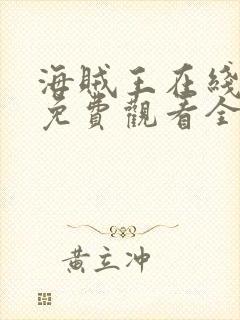 海賊王在綫
免費觀看全
黃立冲